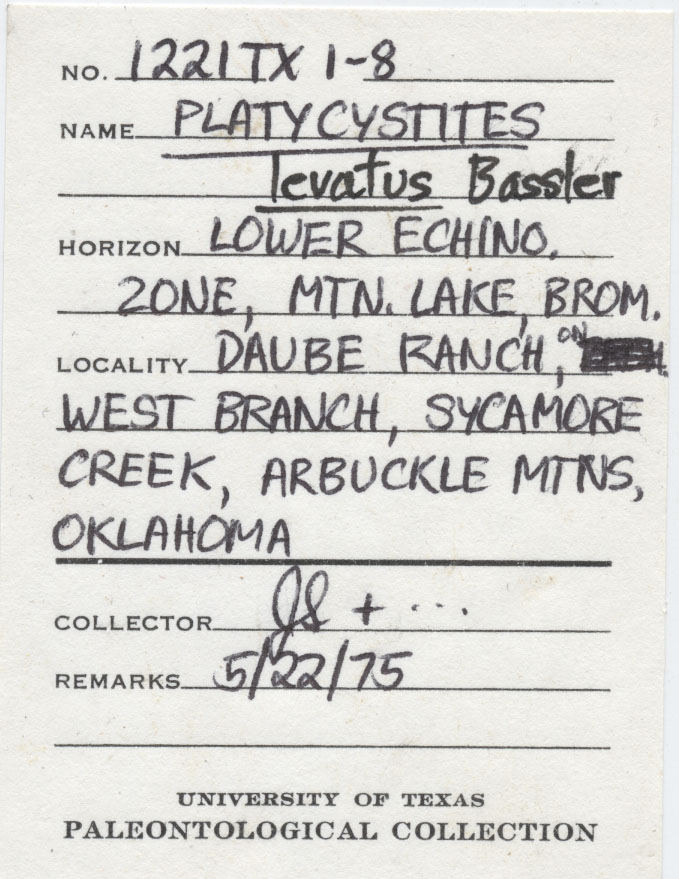 NO. 1221TX 1-8
NAME PLATYCYSTITES
levatus Bassler
HORIZON LOWER ECHINO.
ZONE, MTN. LAKE, BROM.
LOCALITY DAUBE RANCH, ON
WEST BRANCH, SYCAMORE
CREEK, ARBUCKLE MTNS,
OKLAHOMA
COLLECTOR JS + ...
REMARKS 5/22/75
UNIVERSITY OF TEXAS
PALEONTOLOGICAL COLLECTION